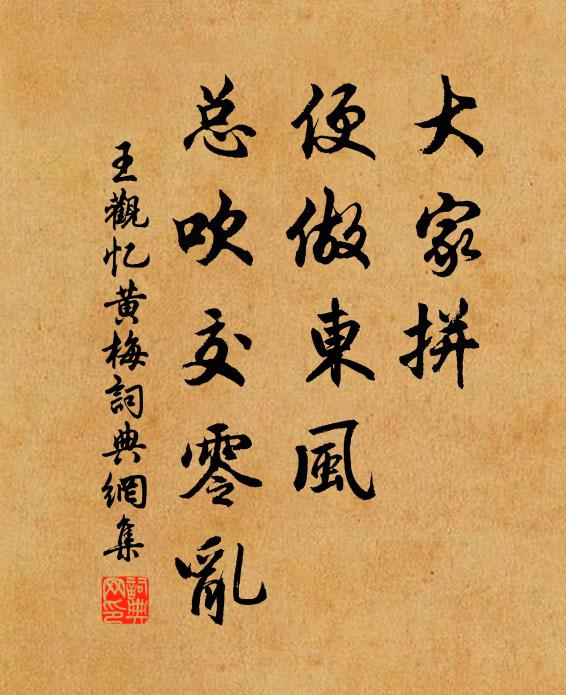 大家拼
便做東風
总吹交零亂
王觀忆黄梅詞典網集
詞典
网印